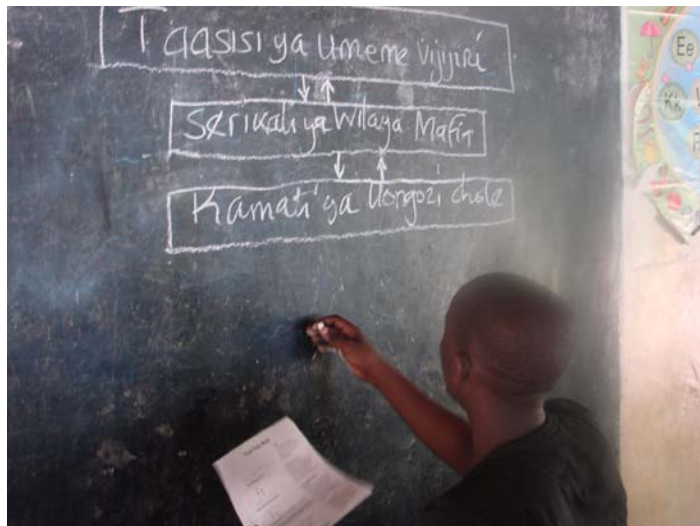 Taasisi ya umeme vijijiri
Serikali ya Wilaya Mafia
Kamati ya Uongozi chole
Ee
Kk